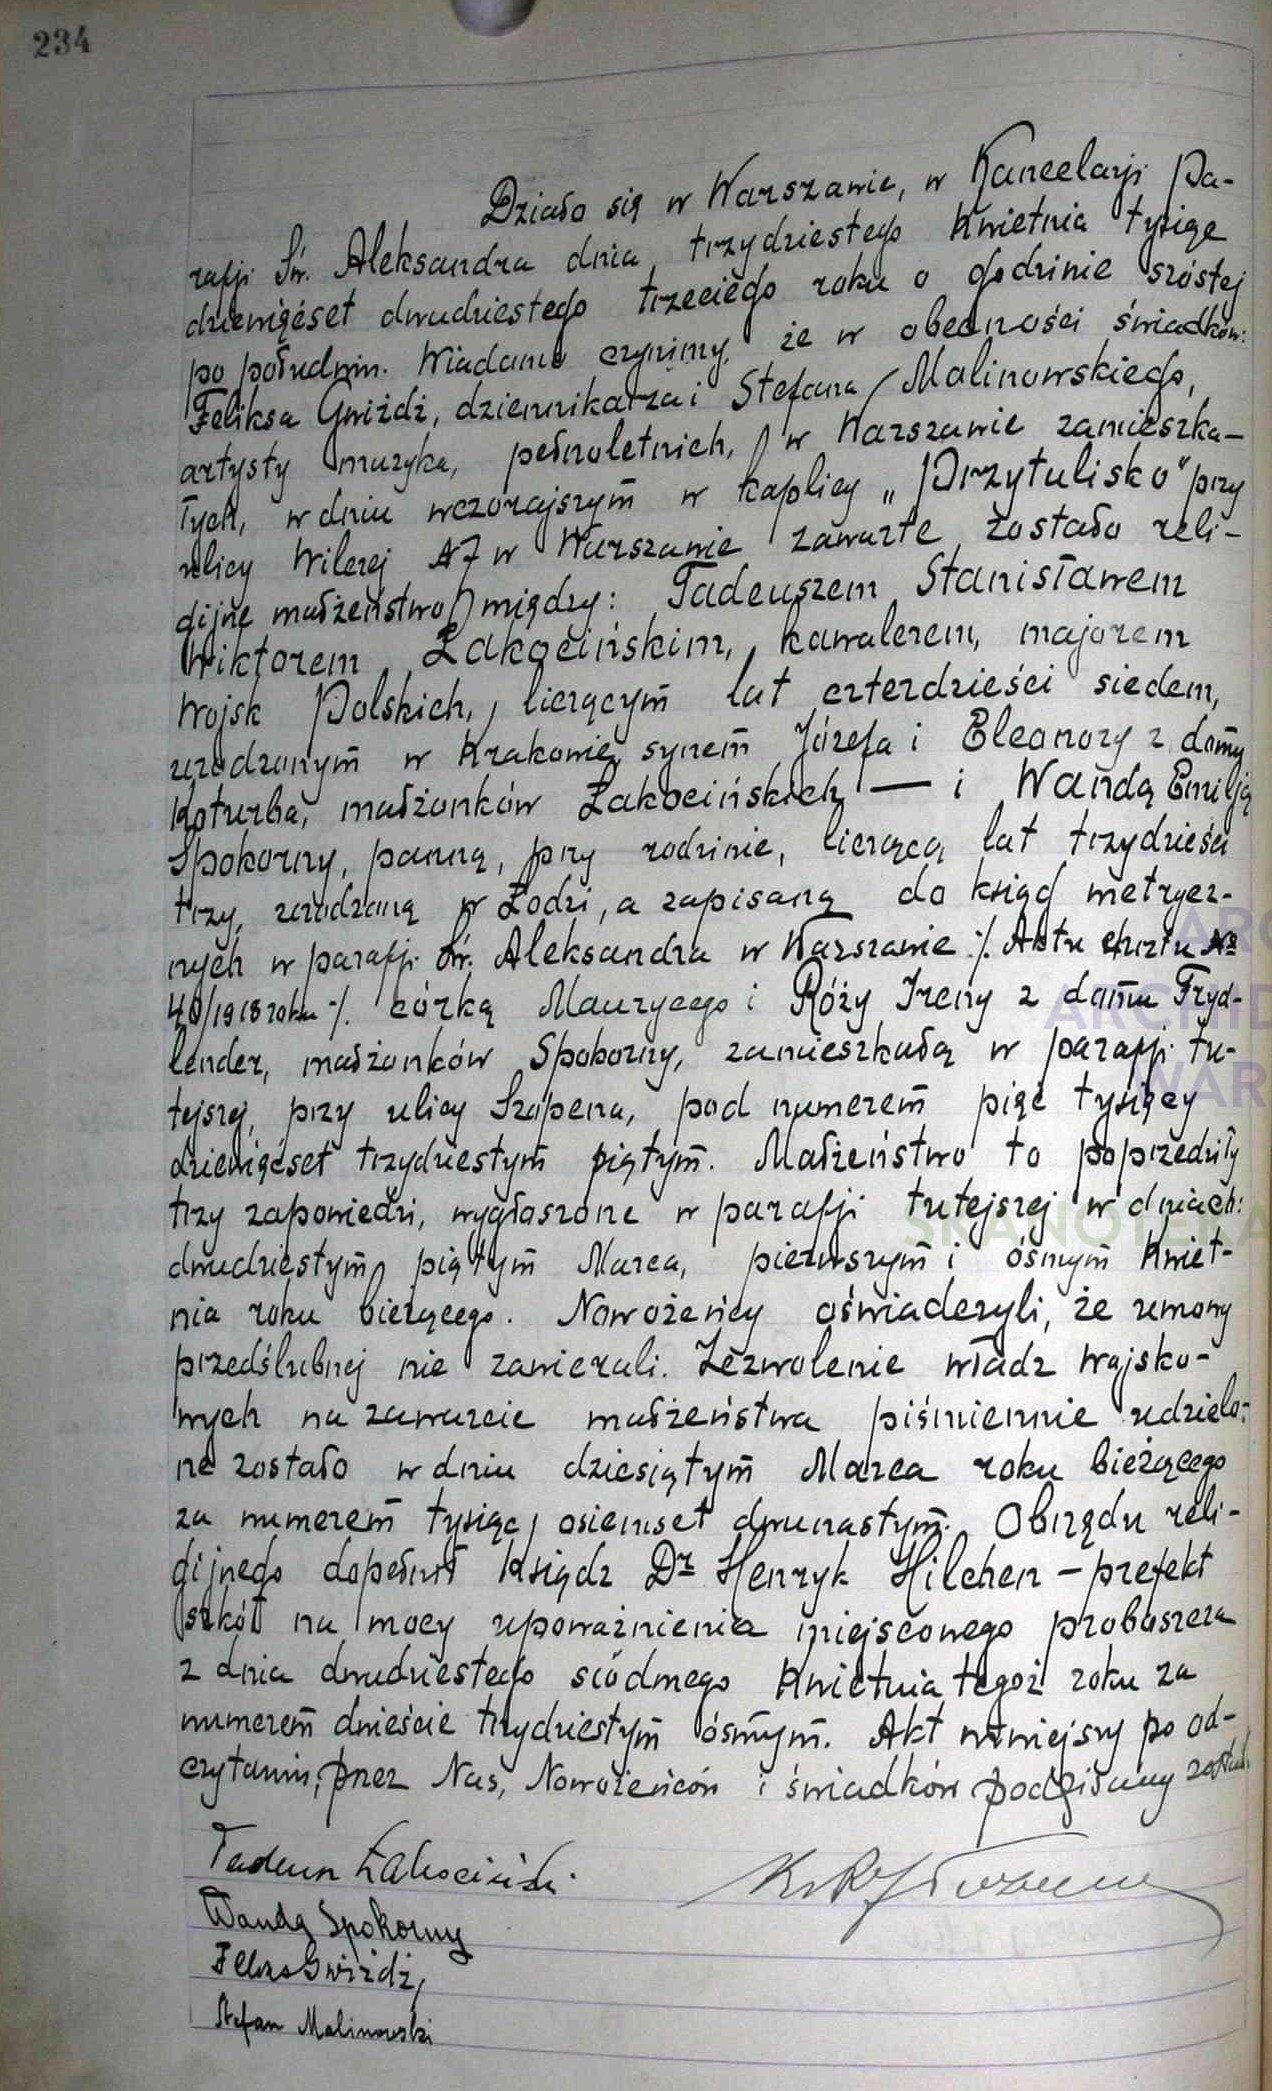 234
Działo się w Warszawie, w Kancelarji Pa-
rafji Św. Aleksandra dnia trzydziestego Kwietnia tysiąc
dziewięćset dwudziestego trzeciego roku o godzinie szóstej
po południu. Wiadomo czynimy, że w obecności świadków:
Feliksa Gwiżdż, dziennikarza i Stefana Malinowskiego,
artysty muzyka, pełnoletnich, w Warszawie zamieszka-
łych, w dniu wczorajszym w kaplicy „Przytulisko" przy
ulicy Wilczej №7 w Warszawie zawarte zostało reli-
gijne małżeństwo między: Tadeuszem Stanisławem
Wiktorem Łakocińskim, kawalerem, majorem
Wojsk Polskich, liczącym lat czterdzieści siedem,
urodzonym w Krakowie, synem Józefa i Eleonory z domu
Koturba, małżonków Łakocińskich — i Wandą Emilją
Spokorny, panną, przy rodzinie, liczącą lat trzydzieści
trzy, urodzoną w Łodzi, a zapisaną do ksiąg metrycz-
nych w parafji Św. Aleksandra w Warszawie ·/. Aktu chrztu №
40/1918 roku ·/. córką Maurycego i Róży Ireny z domu Fryd-
lender, małżonków Spokorny, zamieszkałą w parafji tu-
tejszej, przy ulicy Szopena, pod numerem pięć tysięcy
dziewięćset trzydziestym piątym. Małżeństwo to poprzedziły
trzy zapowiedzi, wygłoszone w parafji tutejszej w dniach:
dwudziestym piątym Marca, pierwszym i ósmym Kwiet-
nia roku bieżącego. Nowożeńcy oświadczyli, że umowy
przedślubnej nie zawierali. Zezwolenie władz wojsko-
wych na zawarcie małżeństwa piśmiennie udzielo-
ne zostało w dniu dziesiątym Marca roku bieżącego
za numerem tysiąc osiemset dwunastym. Obrzędu reli-
gijnego dopełnił Ksiądz Dr Henryk Hilchen – prefekt
szkół na mocy upoważnienia miejscowego proboszcza
z dnia dwudziestego siódmego Kwietnia tegoż roku za
numerem dwieście trzydziestym ósmym. Akt niniejszy po od-
czytaniu, przez Nas, Nowożeńców i świadków podpisany został.
Tadeusz Łakociński
Wanda Spokorny
Feliks Gwiżdż,
Stefan Malinowski